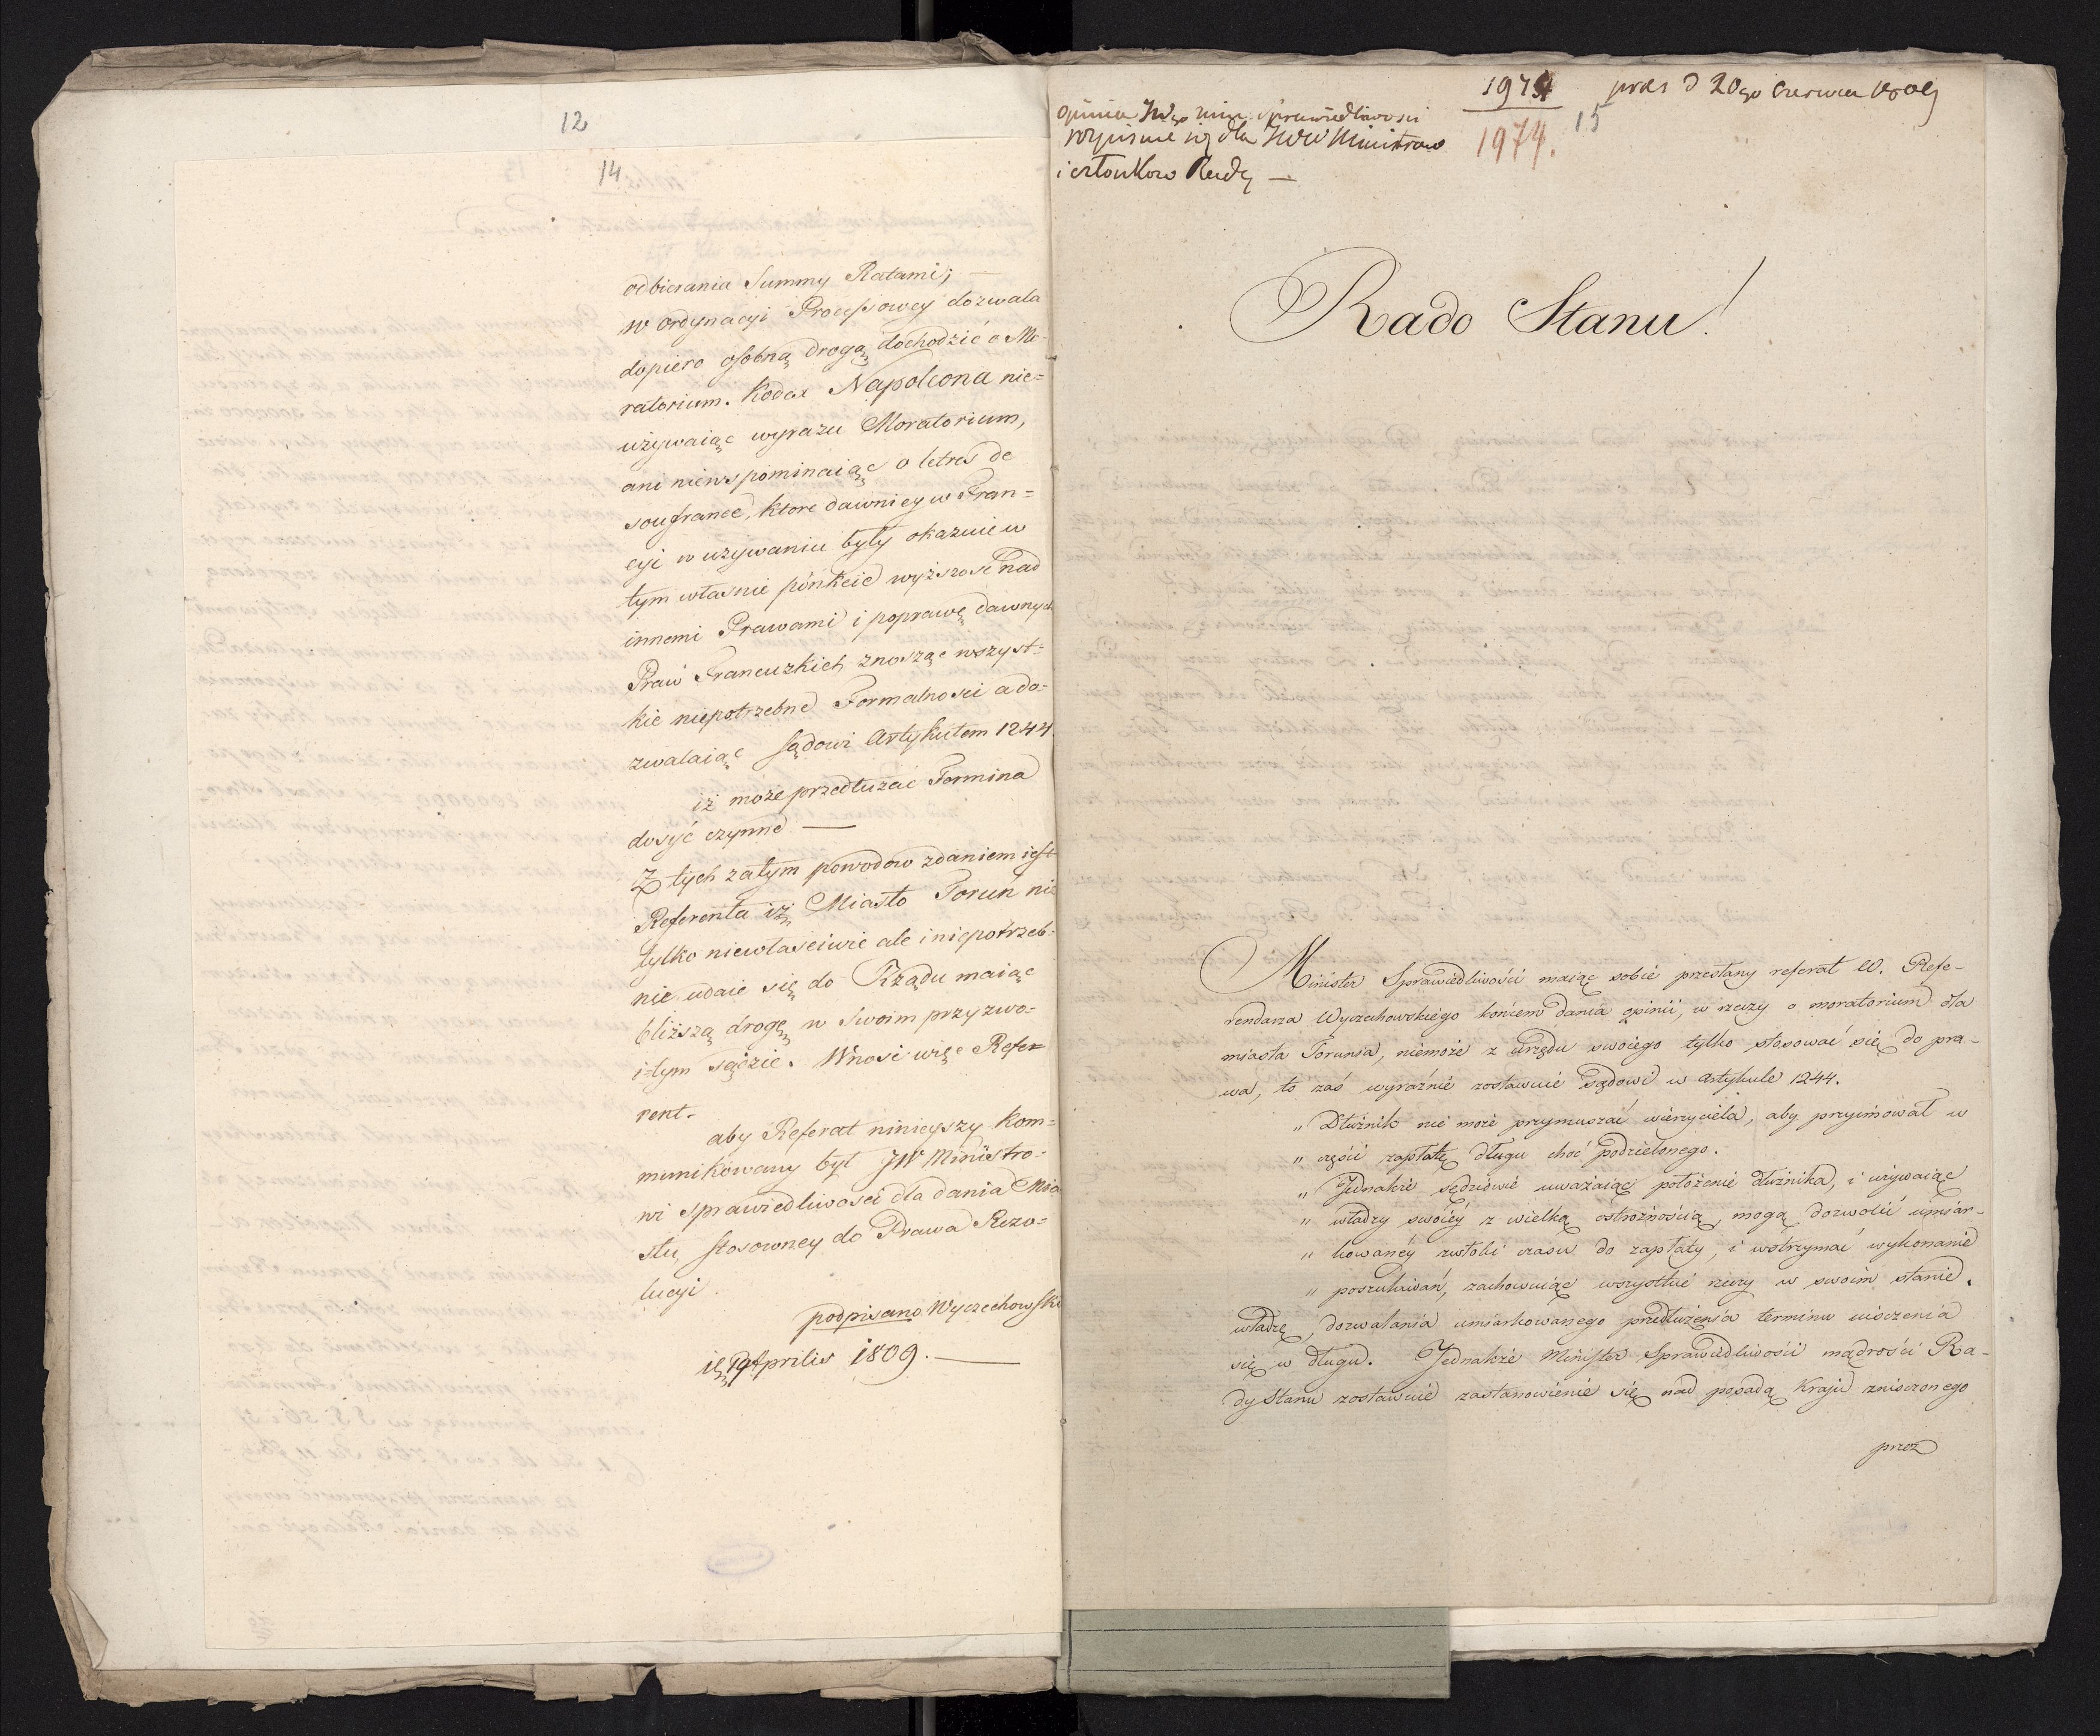 12
14
odbierania Summy Ratami; —
w ordynacyi Processowey dozwala
dopiero osobną drogą dochodzić o Mo-
ratorium. Kodex Napoleona nie=
używaiąc wyrazu Moratorium,
ani niewspominaiąc o letres de
soufrance, ktore dawniey w Fran=
cyi w używaniu były okazuie w
tym własnie pónkcie wyższosć nad
innemi Prawami i poprawę dawnych
Praw Francuzkich znosząc wszyst=
kie niepotrzebne Formalnosci a do=
zwalaiąc Sądowi Artykułem 1244.
iż może przedłużać Termina
dosyć czynne —
Z tych zatym powodow zdaniem iest
Referenta iż Miasto Toruń nie
tylko niewłasciwie ale i niepotrzeb=
nie udaie się do Rządu maiąc
bliższą drogę w Swoim przyzwo=
itym sądzie. Wnosi więc Refe=
rent.
aby Referat ninieyszy kom=
munikowany był JW Ministro=
wi sprawiedliwosci dla dania Mia
stu stosowney do Prawa Rezo=
lucyi.
podpisano Wyczechowski
19 Aprilis 1809. —
1974 pras d 20go Czerwca 1809
opinia JWgo Min: Sprawiedliwosci 15
wypisuie się dla JWW Ministrow 1974.
i członkow Rady —
Rado Stanu!
Minister Sprawiedliwości maiąc sobie przesłany referat W. Refe-
rendarza Wyczechowskiego końcem dania opinii, w rzeczy o moratorium dla
miasta Torunia, niemoże z urzędu swoiego tylko stosować się do pra-
wa, to zaś wyraźnie zostawuie sądowi w Artykule 1244.
„ Dłużnik nie może przymuszać wierzyciela, aby przyimował w
„ części zapłatę długu choć podzielonego.
„ Jednakże sędziowie uważaiąc położenie dłużnika, i używaiąc
„ władzy swoiéy z wielką ostrożnością, mogą dozwolić umiar-
„ kowanéy zwłoki czasu do zapłaty, i wstrzymać wykonanie
„ poszukiwań, zachowuiąc wszystkie rzeczy w swoim stanie.
władzę, dozwalania umiarkowanego przedłużenia terminu uiszczenia
się w długu. Jednakże Minister Sprawiedliwości mądrości Ra-
dy Stanu zostawuie zastanowienie się nad posadą Kraju zniszczonego
przez